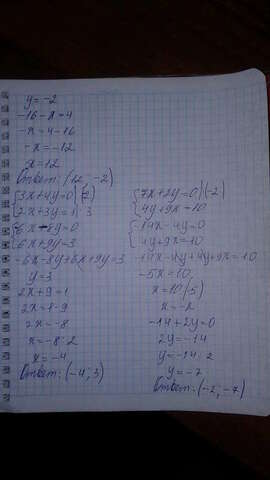 y = -2
-16 - x = 4
-x = 4 - 16
-x = -12
x = 12
Ответ: (12; -2)
{3x + 4y = 0 | (-2)
{2x + 3y = 1 | 3
{6x - 8y = 0
{6x + 9y = 3
-6x - 8y + 6x + 9y = 3
y = 3
2x + 9 = 1
2x = 8 - 9
2x = -8
x = -8 : 2
x = -4
Ответ: (-4; 3)
{7x + 2y = 0 | (-2)
{4y + 9x = 10
{-14x - 4y = 0
{4y + 9x = 10
-14x - 4y + 4y + 9x = 10
-5x = 10
x = 10 (-5)
x = -2
-14 + 2y = 0
2y = -14
y = -14 : 2
y = -7
Ответ: (-2; -7)